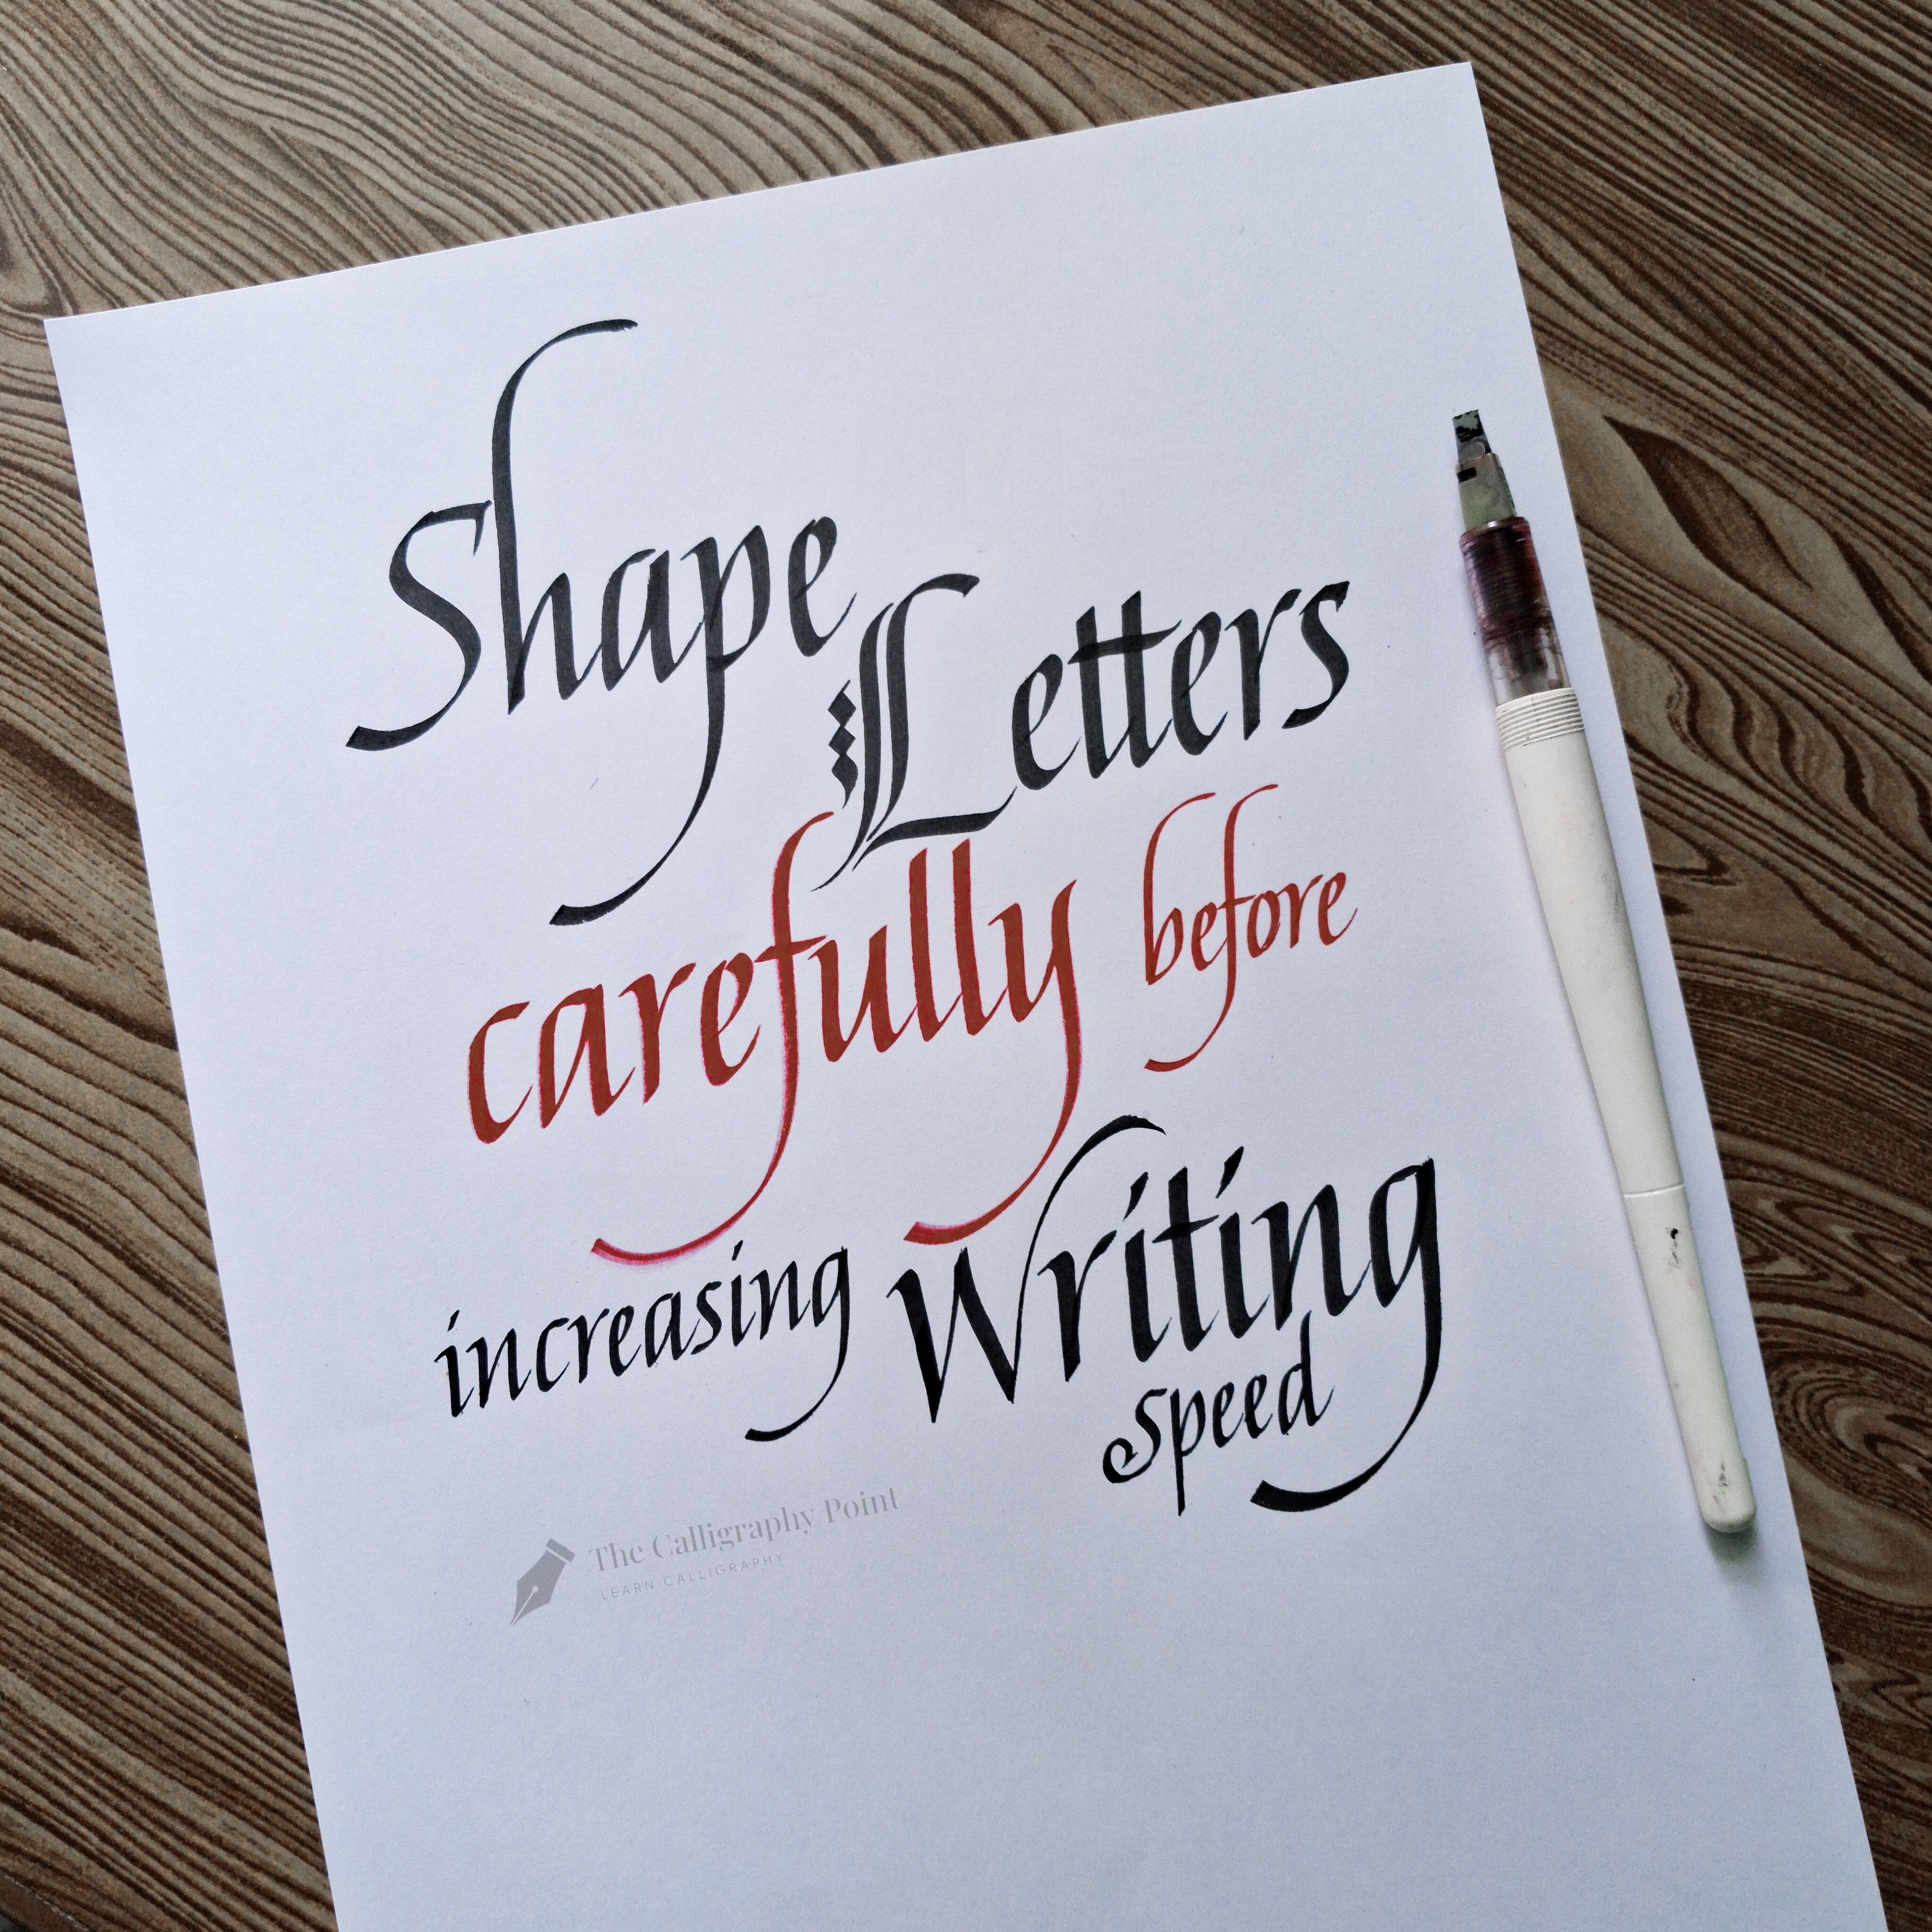 Shape
Letters
carefully before
increasing Writing
speed
The Calligraphy Point
LEARN CALLIGRAPHY